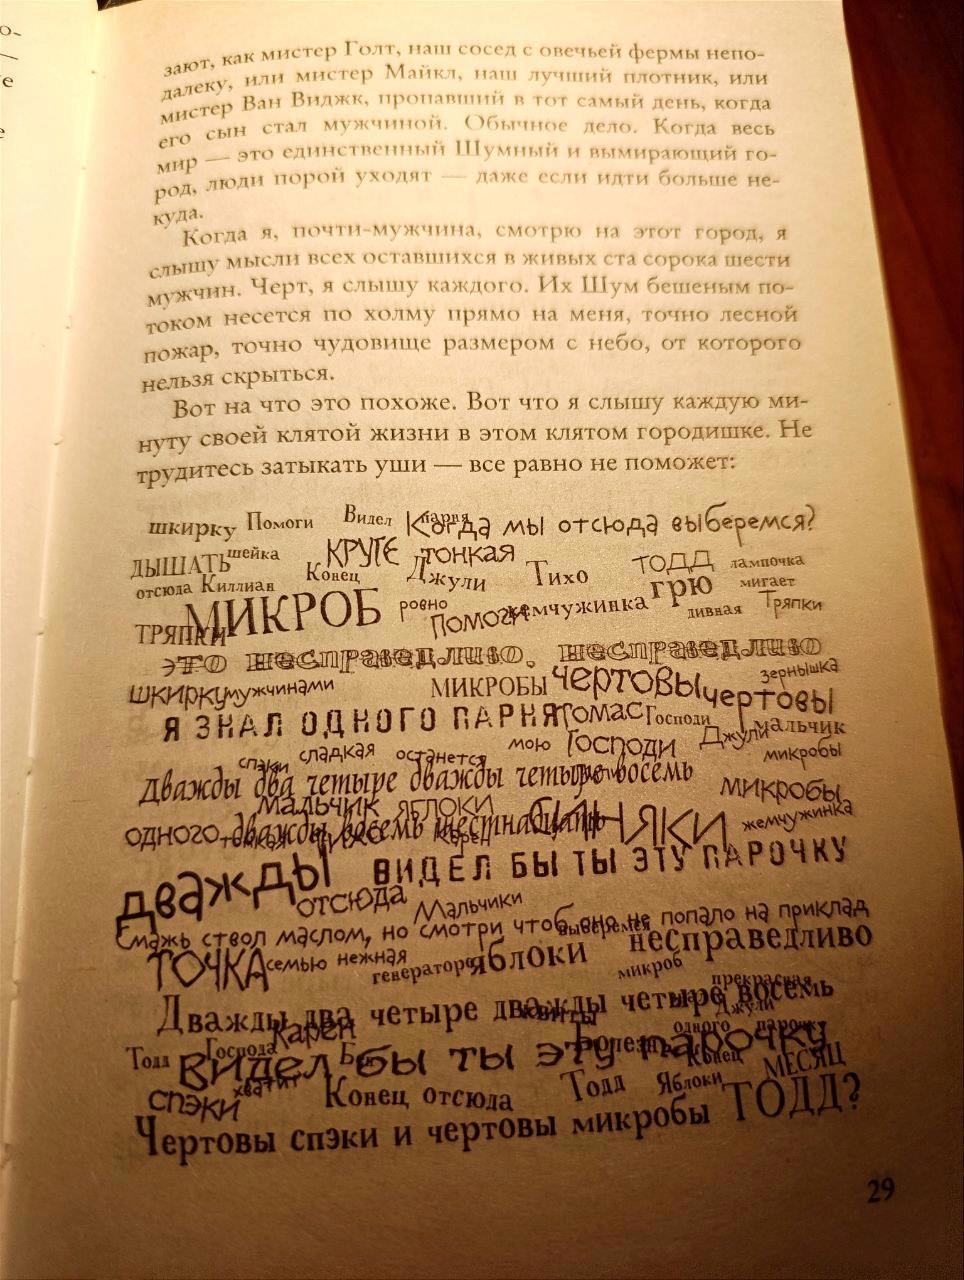 зают, как мистер Голт, наш сосед с овечьей фермы непо-
далеку, или мистер Майкл, наш лучший плотник, или
мистер Ван Виджк, пропавший в тот самый день, когда
его сын стал мужчиной. Обычное дело. Когда весь
мир — это единственный Шумный и вымирающий го-
род, люди порой уходят — даже если идти больше не-
куда.
Когда я, почти-мужчина, смотрю на этот город, я
слышу мысли всех оставшихся в живых ста сорока шести
мужчин. Черт, я слышу каждого. Их Шум бешеным по-
током несется по холму прямо на меня, точно лесной
пожар, точно чудовище размером с небо, от которого
нельзя скрыться.
Вот на что это похоже. Вот что я слышу каждую ми-
нуту своей клятой жизни в этом клятом городишке. Не
трудитесь затыкать уши — все равно не поможет:
шкирку Помоги Видел парня Когда мы отсюда выберемся?
ДЫШАТЬ шейка КРУГЕ тонкая ТОДД лампочка
отсюда Киллиан Конец Джули Тихо грю мигает
ТРЯПКИ МИКРОБ ровно Помоги жемчужинка дивная Тряпки
это несправедливо, несправедливо
шкирку мужчинами МИКРОБЫ чертовы чертовы зернышка
Я ЗНАЛ ОДНОГО ПАРНЯ Томас Господи мальчик
спэки сладкая останется мою Господи Джули микробы
Дважды два четыре дважды четыре восемь
мальчик яблоки микробы
одного дважды восемь шестнадцать СИНЯКИ жемчужинка
Карен
дважды ВИДЕЛ БЫ ТЫ ЭТУ ПАРОЧКУ
отсюда Мальчики
Смажь ствол маслом, но смотри чтоб оно не попало на приклад
выберемся
ТОЧКА семью нежная генераторе яблоки микроб несправедливо
прекрасная
Дважды два четыре дважды четыре восемь
Карен Джули
одного парочку
Тодд Господа Видел бы ты эту парочку
Конец МЕСЯЦ
спэки хватит Конец отсюда Тодд Яблоки
Чертовы спэки и чертовы микробы ТОДД?
29